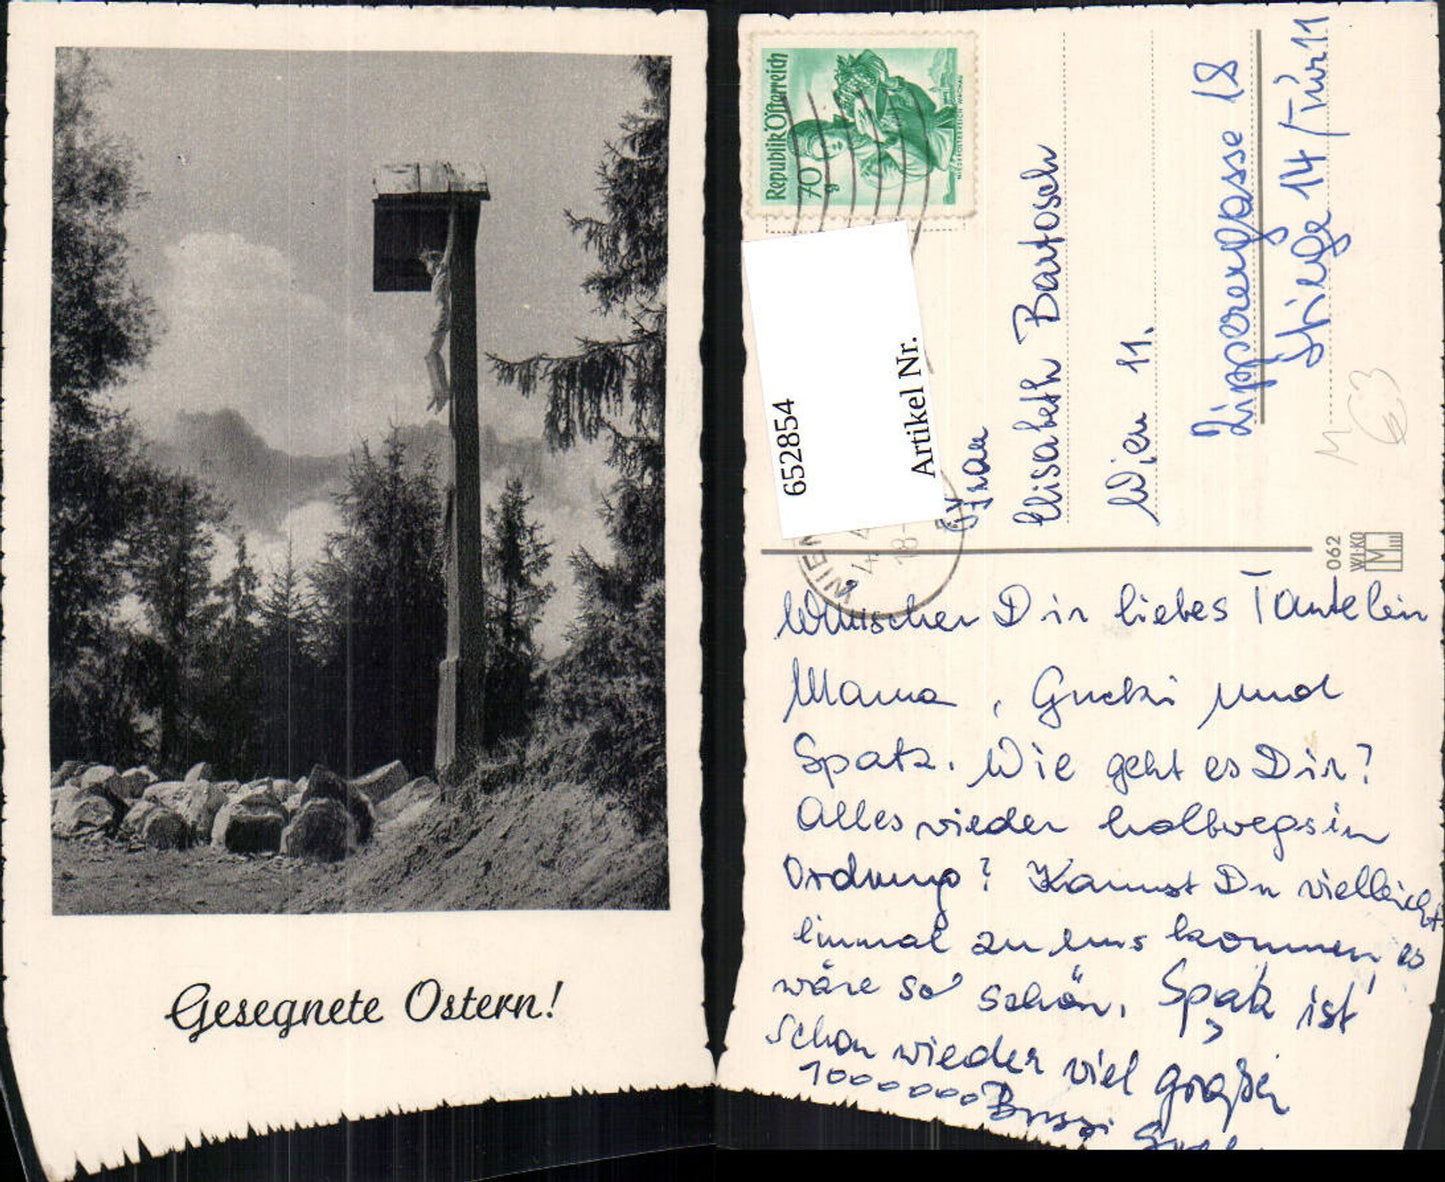 Gesegnete Ostern!
Republik Österreich
70 g
NIEDERÖSTERREICH, WACHAU
652854
Artikel Nr.
WIEN
18
Frau
Elisabeth Bartosch
Wien 11.
Zipperergasse 18
Stiege 14 / Tür 11
M
63
062
WI-KO
M
Wünschen Dir liebes Tantelein
Mama, Gucki und
Spatz. Wie geht es Dir?
Alles wieder halbwegs in
Ordnung? Kannst Du vielleicht
einmal zu uns kommen, es
wäre so schön. Spatz ist
schon wieder viel größer
1000000 Bussi